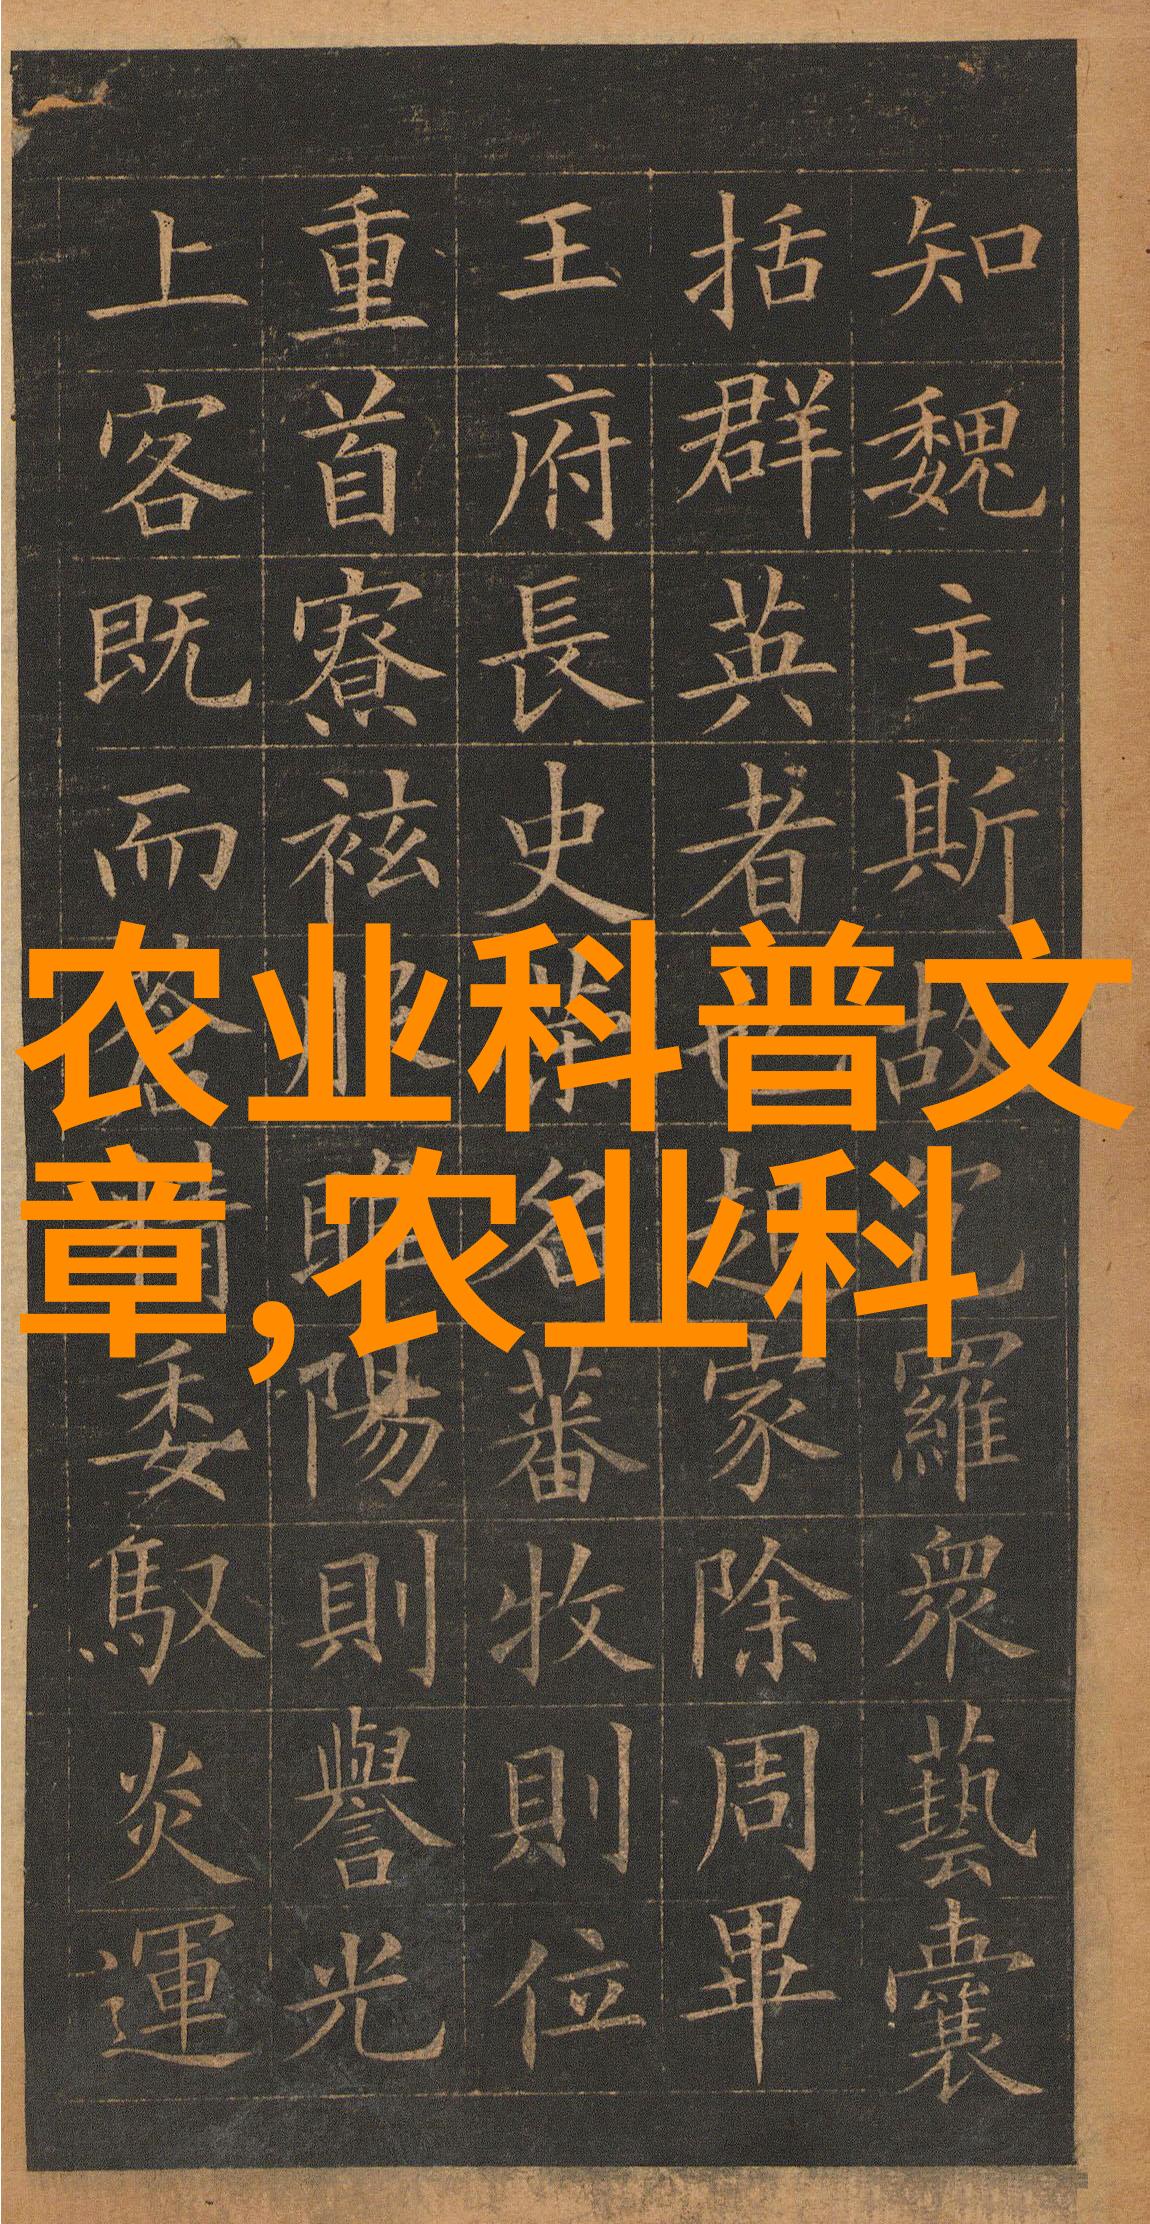 知魏主斯故包羅眾藝囊
括群英者也起家除周畢
王府長史名蕃牧則位
重首寮袨服睢陽則譽光
上客既而蒼精委馭炎運
农业科普文
章,农业科